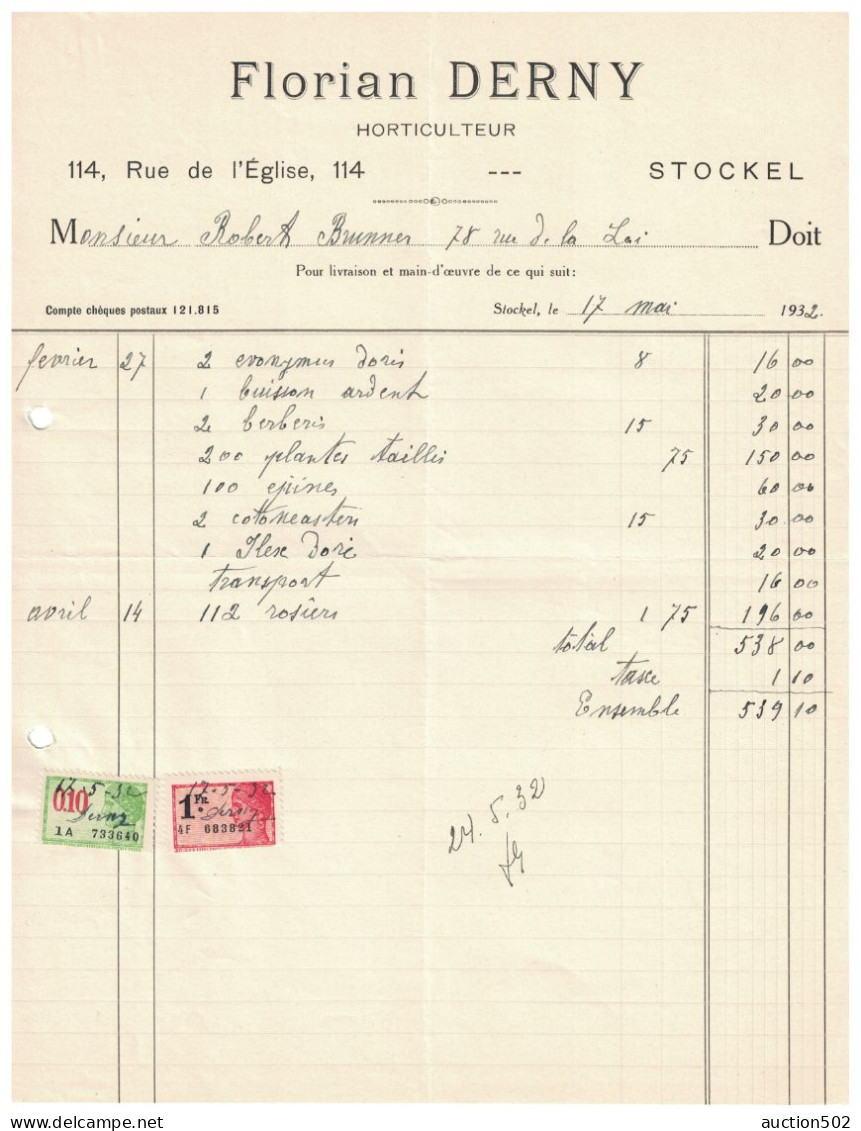 Florian DERNY
HORTICULTEUR
114, Rue de l'Église, 114 --- STOCKEL
Monsieur Robert Brunner 78 rue de la Loi Doit
Pour livraison et main-d'œuvre de ce qui suit:
Compte chèques postaux 121.815 Stockel, le 17 mai 1932.
fevrier 27 2 evonymus doris 8 16 00
1 buisson ardent 20 00
2 berberis 15 30 00
200 plantes taillis 75 150 00
100 epines 60 00
2 cotoneasters 15 30 00
1 Ilex doré 20 00
transport 16 00
avril 14 112 rosiers 1 75 196 00
total 538 00
taxe 1 10
Ensemble 539 10
17-5-32 17-5-32
0.10 1 FR.
Derny Derny
1A 733640 4F 683821
24.5.32
auction502